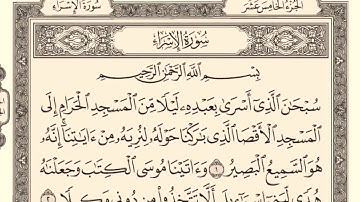 سُورَةُ الإِسْرَاءِ
الجُزْءُ الخَامِسَ عَشَرَ
سُورَةُ الإِسْرَاءِ
بِسْمِ اللَّهِ الرَّحْمَٰنِ الرَّحِيمِ
سُبْحَٰنَ الَّذِي أَسْرَىٰ بِعَبْدِهِ لَيْلًا مِّنَ الْمَسْجِدِ الْحَرَامِ إِلَى
الْمَسْجِدِ الْأَقْصَا الَّذِي بَٰرَكْنَا حَوْلَهُ لِنُرِيَهُ مِنْ ءَايَٰتِنَا إِنَّهُ
هُوَ السَّمِيعُ الْبَصِيرُ ١ وَءَاتَيْنَا مُوسَى الْكِتَٰبَ وَجَعَلْنَٰهُ
هُدًى لِّبَنِي إِسْرَٰءِيلَ أَلَّا تَتَّخِذُوا مِن دُونِي وَكِيلًا ٢